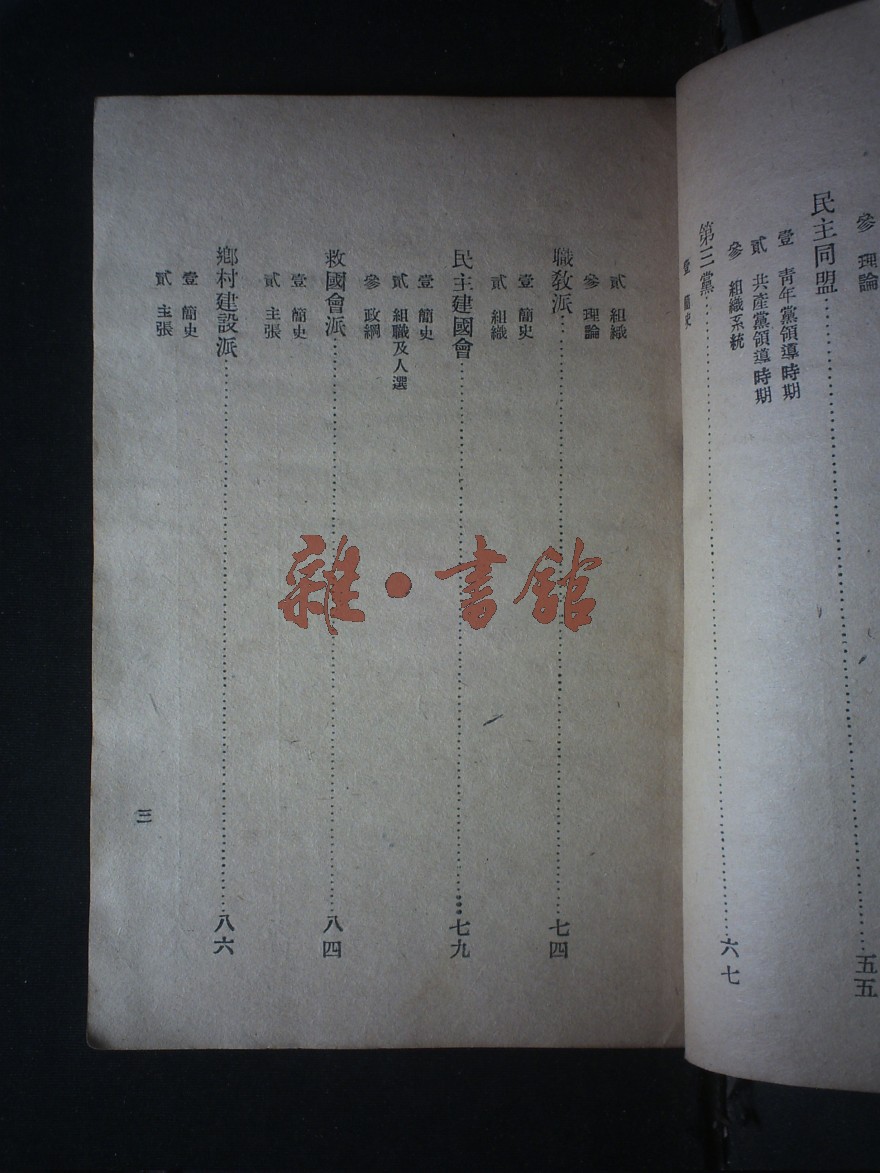 參 理論
民主同盟 五五
壹 青年黨領導時期
貳 共產黨領導時期
參 組織系統
第三黨 六七
壹 簡史
貳 組織
參 理論
職教派 七四
壹 簡史
貳 組織
民主建國會 七九
壹 簡史
貳 組職及人選
參 政綱
救國會派 八四
壹 簡史
貳 主張
鄉村建設派 八六
壹 簡史
貳 主張
三
雜·書館